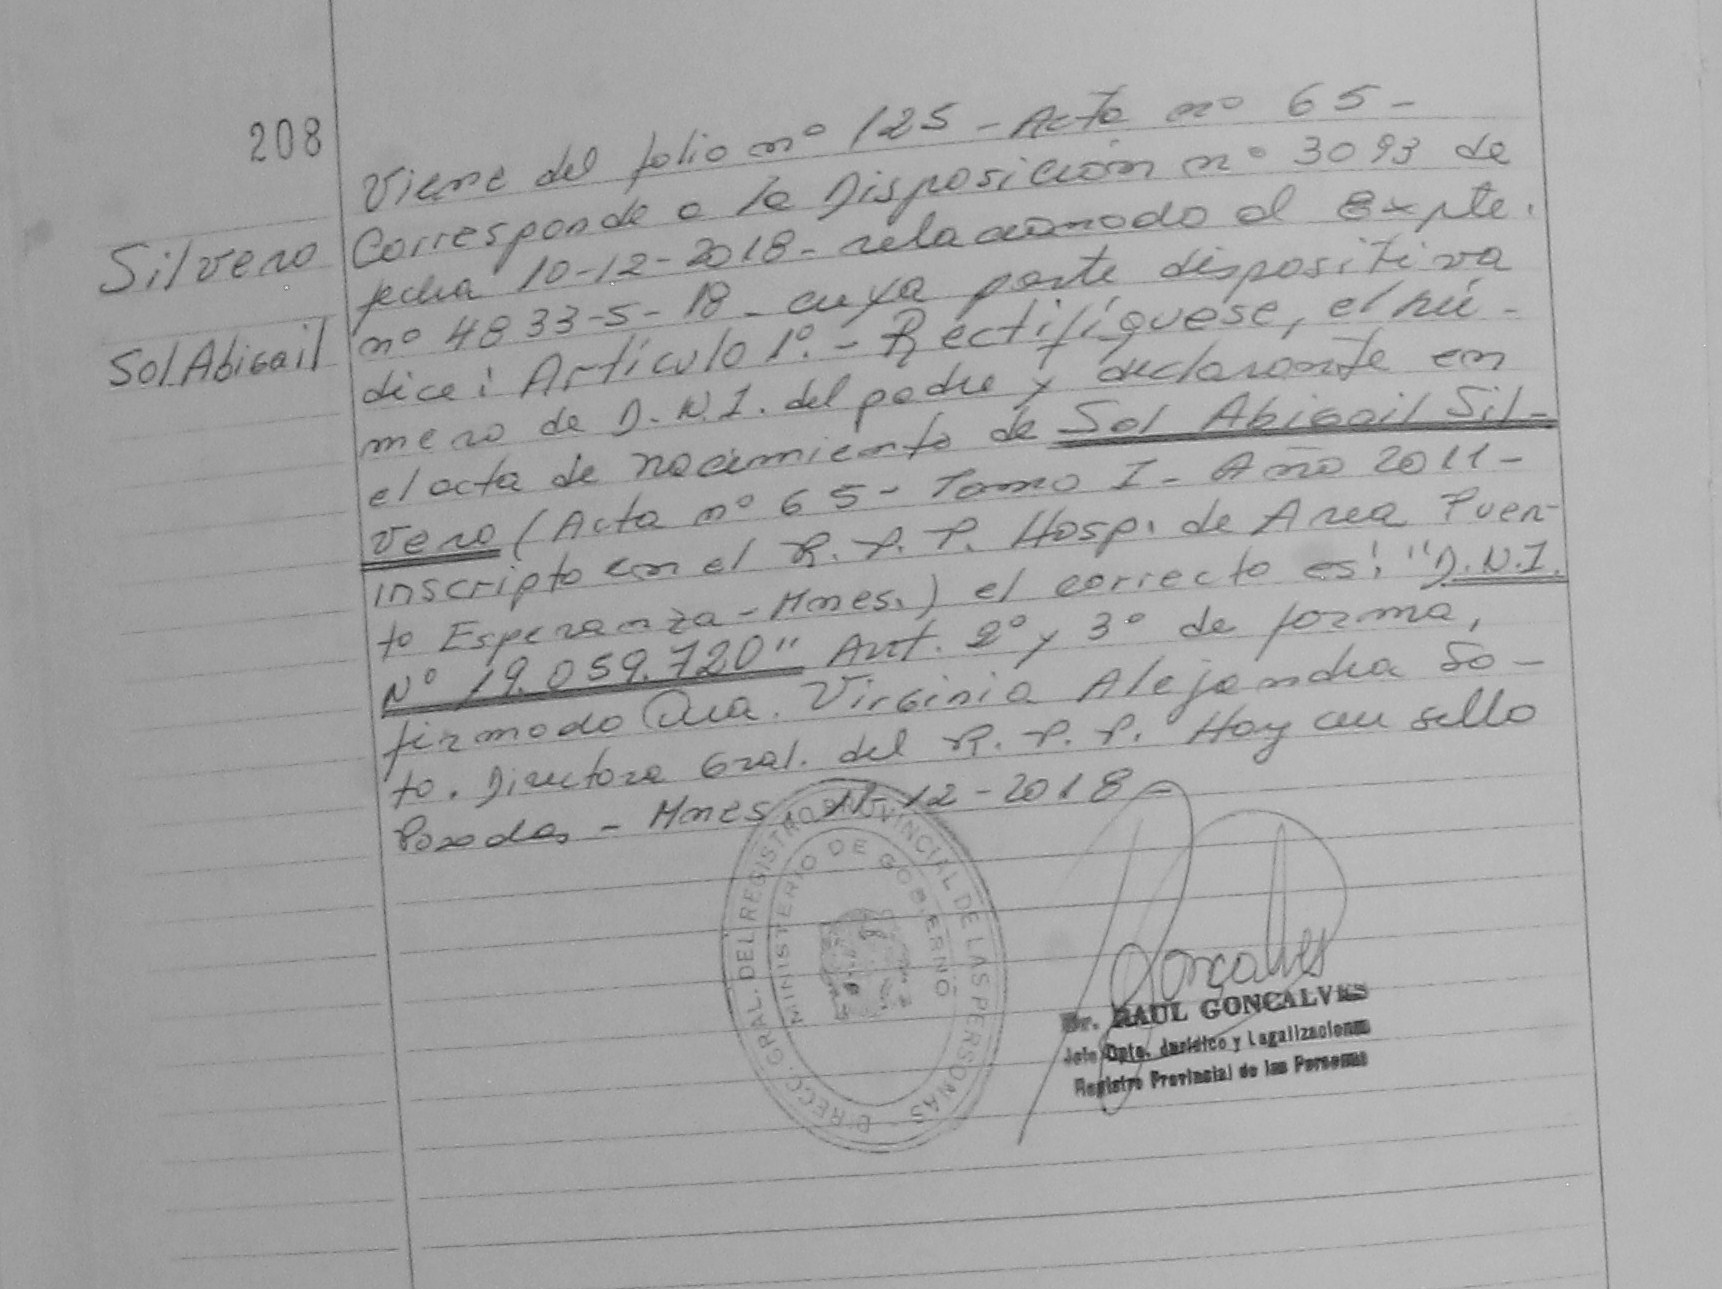 208
Silvero
Sol Abigail
Viene del folio nº 125 - Acta nº 65 -
Corresponde a la Disposición nº 3093 de
fecha 10-12-2018 - relacionado al Expte.
nº 4833-S-18 - cuya parte dispositiva
dice: Artículo 1º. - Rectifíquese, el nú-
mero de D.N.I. del padre y declarante en
el acta de nacimiento de Sol Abigail Sil-
vero (Acta nº 65 - Tomo I - Año 2011 -
inscripto en el R.P.P. Hosp. de Area Puer-
to Esperanza - Mnes.) el correcto es: "D.N.I.
Nº 19.059.720" Art. 2º y 3º de forma,
firmado Dra. Virginia Alejandra So-
to. Directora Gral. del R.P.P. Hay un sello
Posadas - Mnes, 11-12-2018 -
DIRECC. GRAL. DEL REGISTRO PROVINCIAL DE LAS PERSONAS
MINISTERIO DE GOBIERNO
Gonçalves
Dr. RAUL GONCALVES
Jefe Dpto. Jurídico y Legalizaciones
Registro Provincial de las Personas